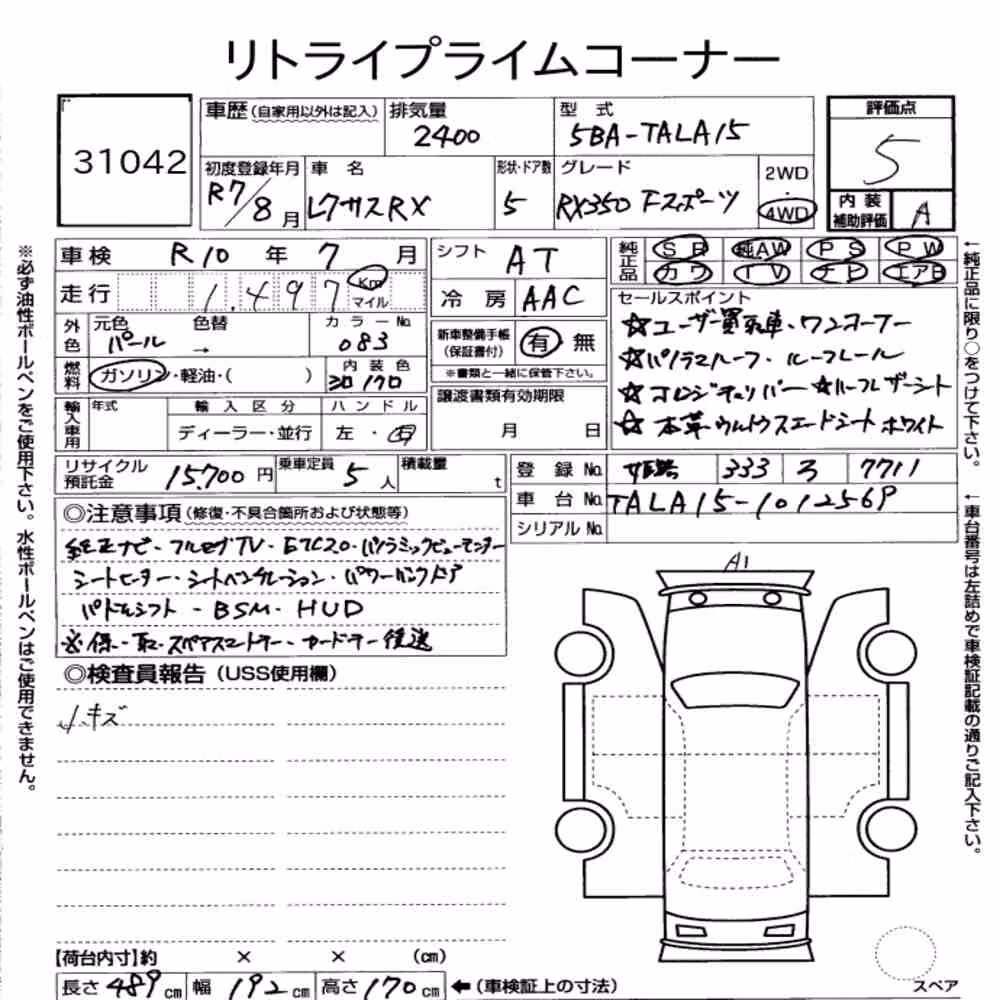 リトライプライムコーナー
31042
車歴(自家用以外は記入) 排気量 2400 型式 5BA-TALA15
評価点 5
初度登録年月 R7/8月 車名 レクサスRX 形状・ドア数 5 グレード RX350 Fスポーツ 2WD・4WD
内装補助評価 A
車検 R10年 7月 シフト AT 純正品 SR 純AW PS PW
カワ TV ナビ エアB
走行 1.497 Km マイル 冷房 AAC
外色 元色 パール 色替 → カラーNo. 083
新車整備手帳(保証書付) 有・無
※書類と一緒に保管下さい。
燃料 ガソリン・軽油・( ) 内装色
輸入車用 年式 輸入区分 ディーラー・並行 ハンドル 左・右
譲渡書類有効期限 月 日
セールスポイント
☆ユーザー買取車・ワンオーナー
☆パノラマルーフ・ルーフレール
☆
☆本革 シート ホワイト
リサイクル預託金 15,700円 乗車定員 5人 積載量 t
登録No. 333 ろ 7711
車台No. TALA15-1012569
シリアルNo.
◎注意事項(修復・不具合箇所および状態等)
純正ナビ・フルセグTV・ETC2.0・パノラミックビューモニター
シートヒーター・シートベンチレーション・パワーバックドア
パドルシフト・BSM・HUD
※保・取・スペアスマートキー・カードキー後送
◎検査員報告(USS使用欄)
小キズ
A1
スペア
【荷台内寸】約 × × (cm)
長さ 489cm 幅 192cm 高さ 170cm ←(車検証上の寸法)
※必ず油性ボールペンをご使用下さい。水性ボールペンはご使用できません。
←純正品に限り○をつけて下さい。
←車台番号は左詰めで車検証記載の通りご記入下さい。